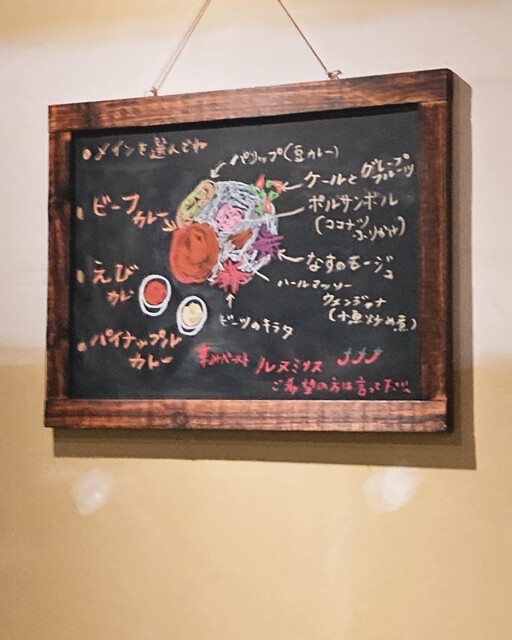 •メインを選んでね
•ビーフカレー
•えびカレー
•パイナップルカレー
パリップ(豆カレー)
ケールとグレープフルーツ
ポルサンボル
(ココナツふりかけ)
なすのモージュ
ハールマッソー
(小魚炒め煮)
ビーツのキラタ
辛みペースト ルヌミリス
ご希望の方は言って下さい